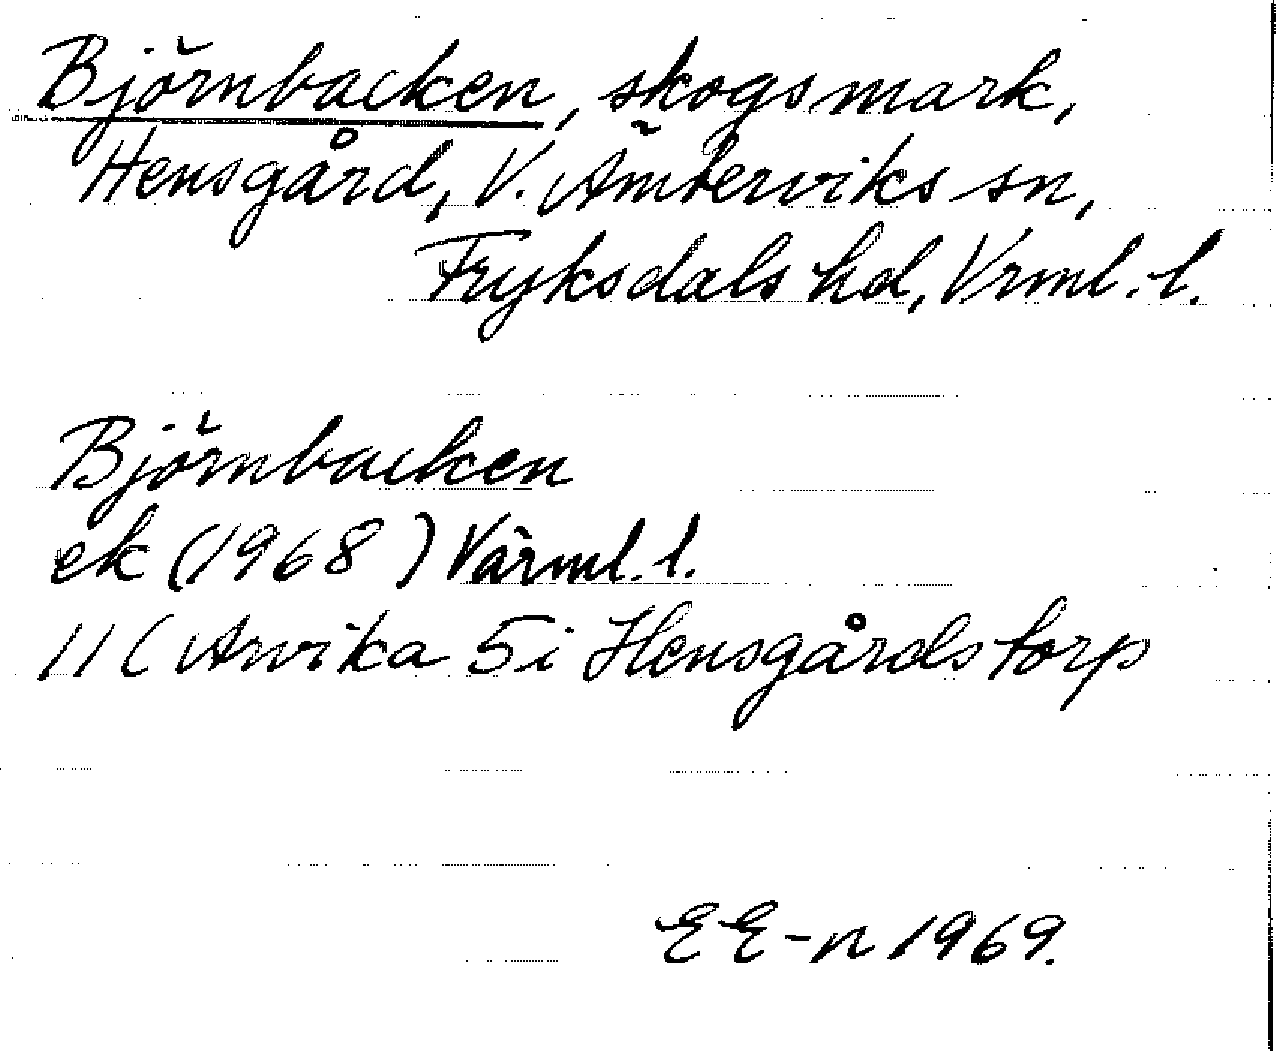 Björnbacken, skogsmark,
Hensgård, V. Ämterviks sn,
Fryksdals hd, Vrml. l.
Björnbacken
ek (1968) Värml. l.
11 C Arvika 5i Hensgårdstorp
EE-n 1969.